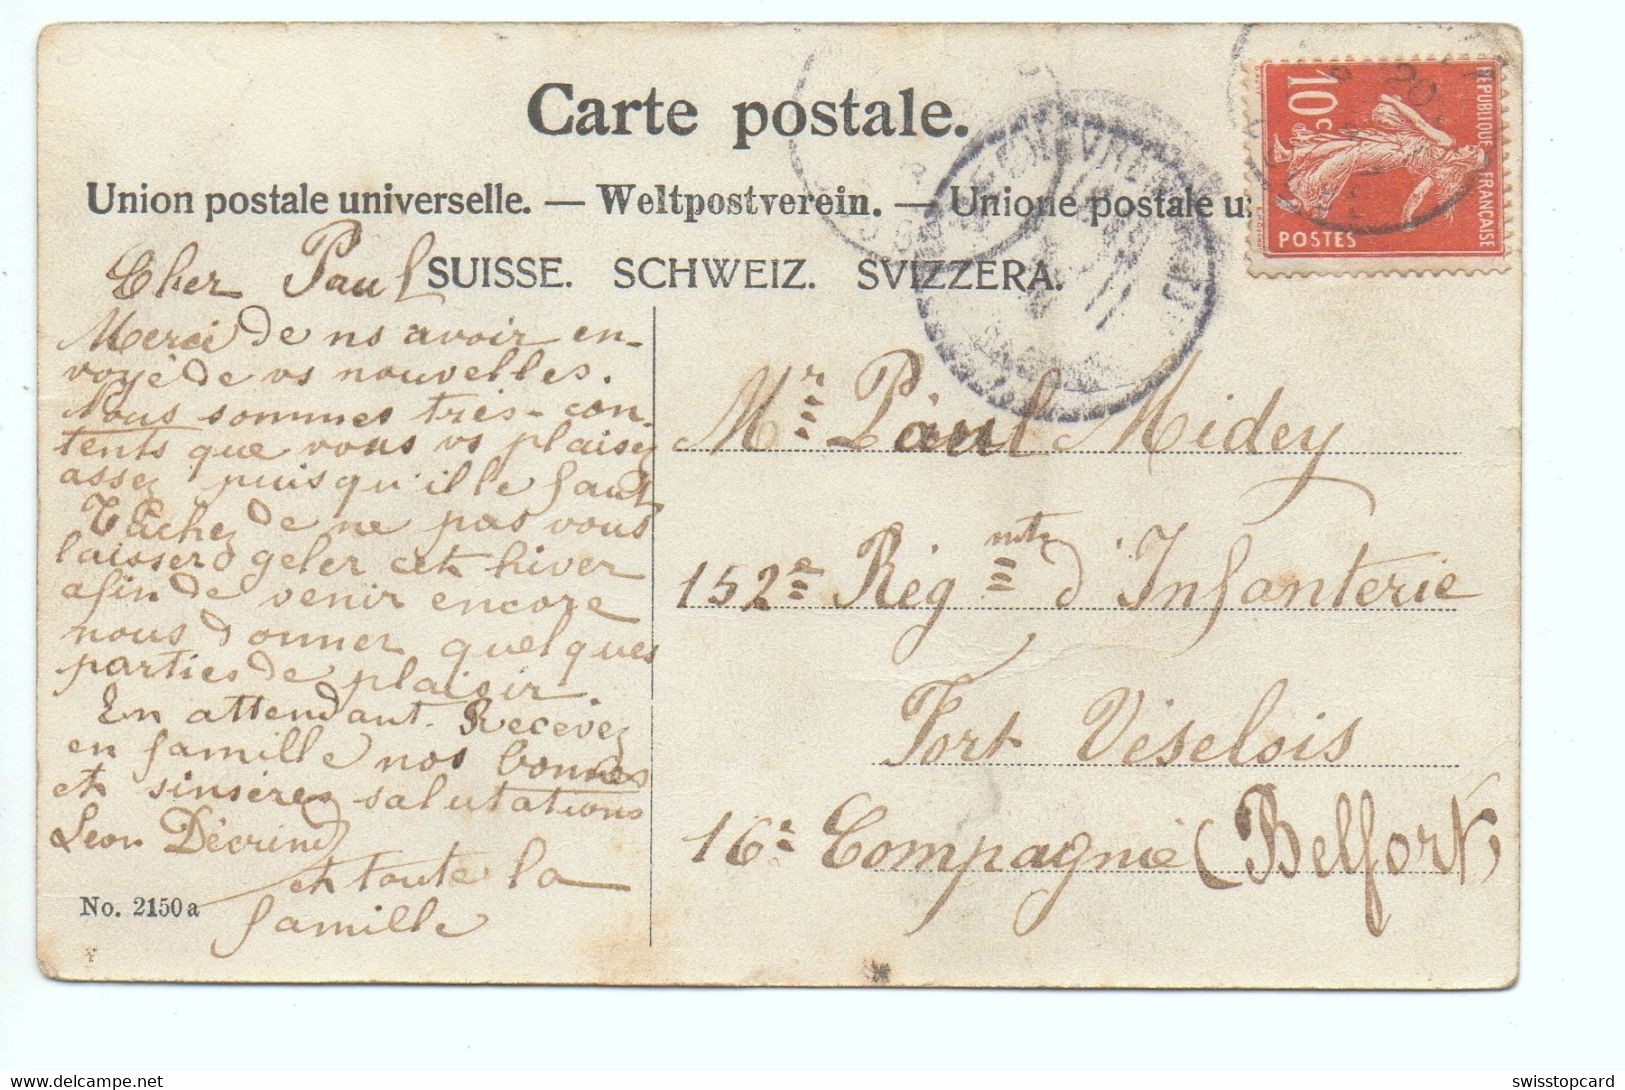 Carte postale.
Union postale universelle. — Weltpostverein. — Unione postale u
SUISSE. SCHWEIZ. SVIZZERA.
REPUBLIQUE FRANÇAISE
10c
POSTES
Cher Paul
Merci de ns avoir en-
voyé de vs nouvelles.
Nous sommes très-con
tents que vous vs plaisez
assez puisqu'ille faut
Tâchez de ne pas vous
laisser geler cet hiver
afin de venir encore
nous donner quelques
parties de plaisir.
En attendant. Recevez
en famille nos bonnes
et sinsères salutations
Leon
et toute la
famille
No. 2150 a
Mr Paul Midey
152e Régmt d'Infanterie
Fort Véselois
16e Compagnie (Belfort)
swisstopcard